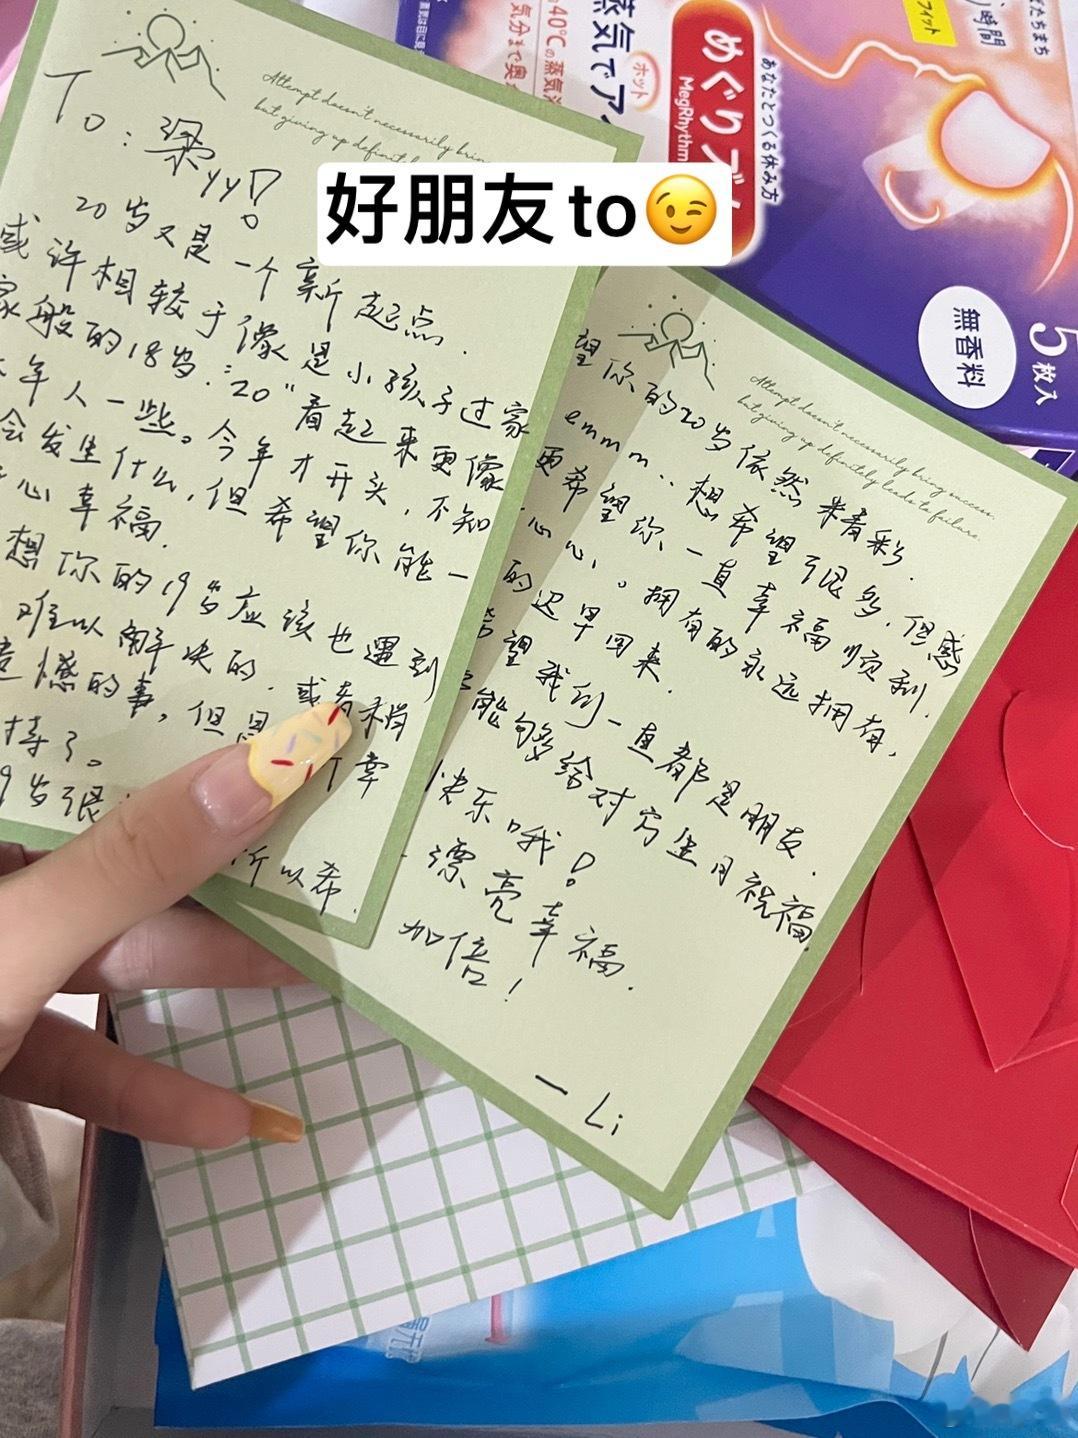 好朋友to😉
Attempt doesn't necessarily bring
but giving up definitely
To：梁yy！
20岁又是一个新起点.
或许相较于像是小孩子过家
家般的18岁."20"看起来更像
年人一些。今年才开头,不知
会发生什么,但希望你能一
心幸福.
想你的19岁应该也遇到
难以解决的.或者稍
遗憾的事,但
持了。
9岁很
所以希
Attempt doesn't necessarily bring success
but giving up definitely leads to failure.
望你的20岁依然精彩.
emmm..想希望很多,但感
更希望你一直幸福顺利.
心心.。拥有的永远拥有,
的迟早回来.
希望我们一直都是朋友.
能够给对方生日祝福.
快乐哦！
漂亮幸福.
加倍！
一Li
めぐりズム
MegRhythm
蒸気でア
ホット
40℃の蒸気
気分まで奥
あなたとつくる休み方
たちまち
時間
フィット
無香料
5枚入